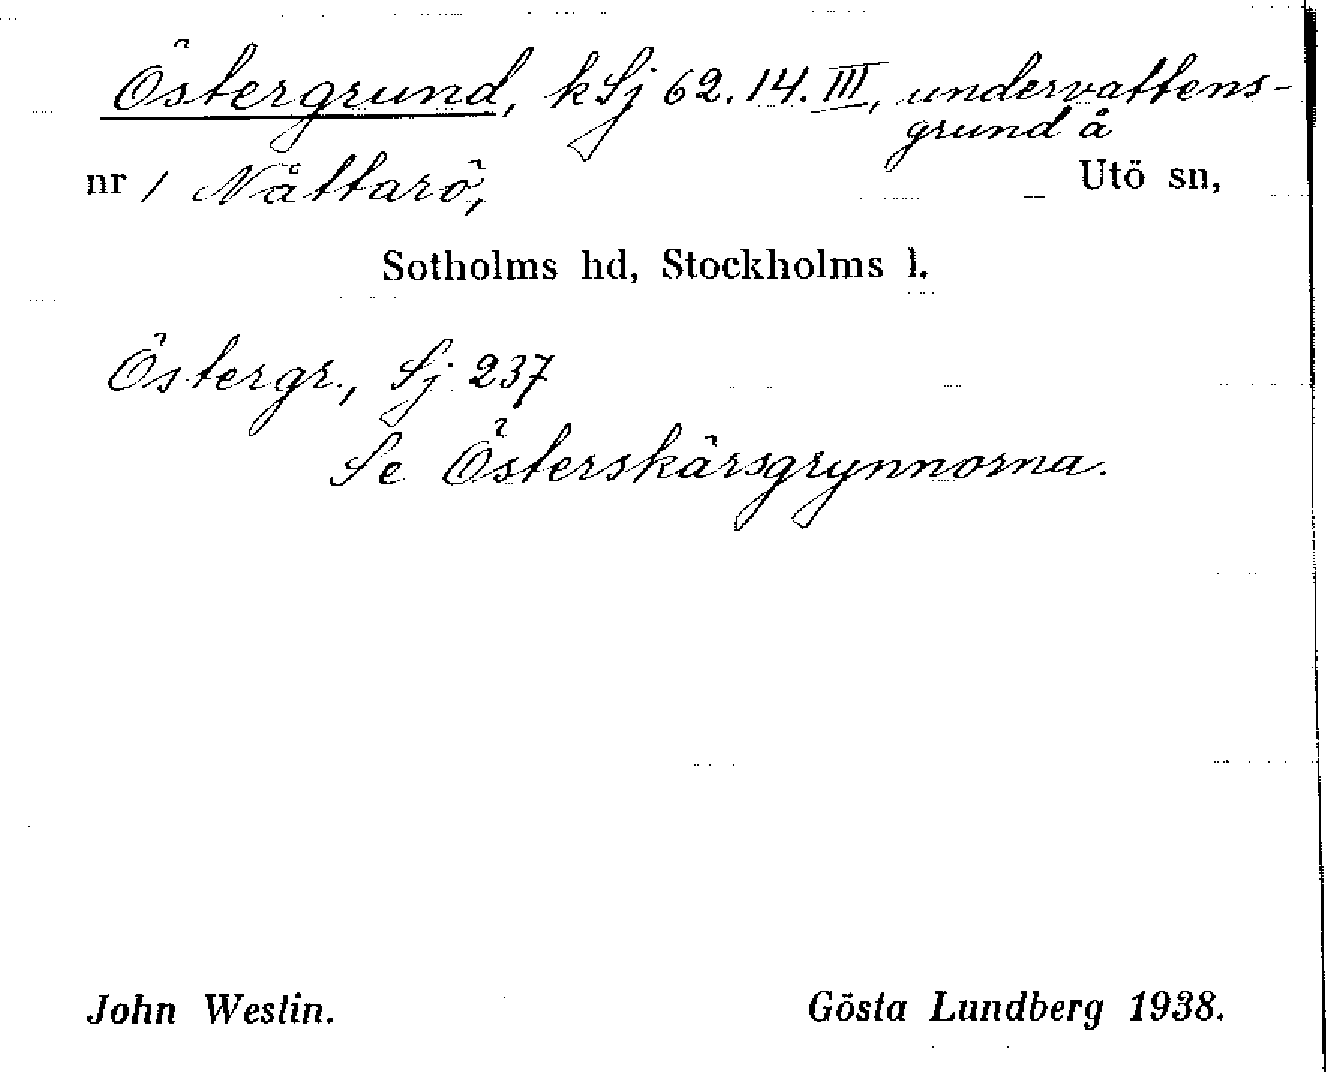 Östergrund, kSj 62.14.III, undervattens-
grund å
nr 1 Nåttarö, Utö sn,
Sotholms hd, Stockholms l.
Östergr., Sj. 237
Se Österskärsgrynnorna.
John Westin. Gösta Lundberg 1938.